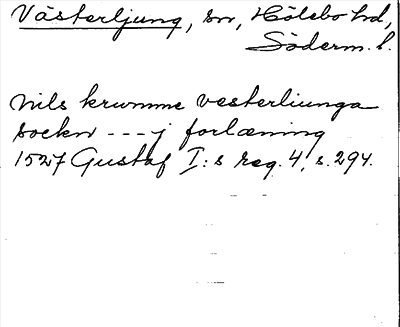 Västerljung, sn, Hölebo hd,
Söderm. l.
nils krumme vesterliunga
sockn --- j forlæning
1527 Gustaf I:s reg. 4, s. 294.